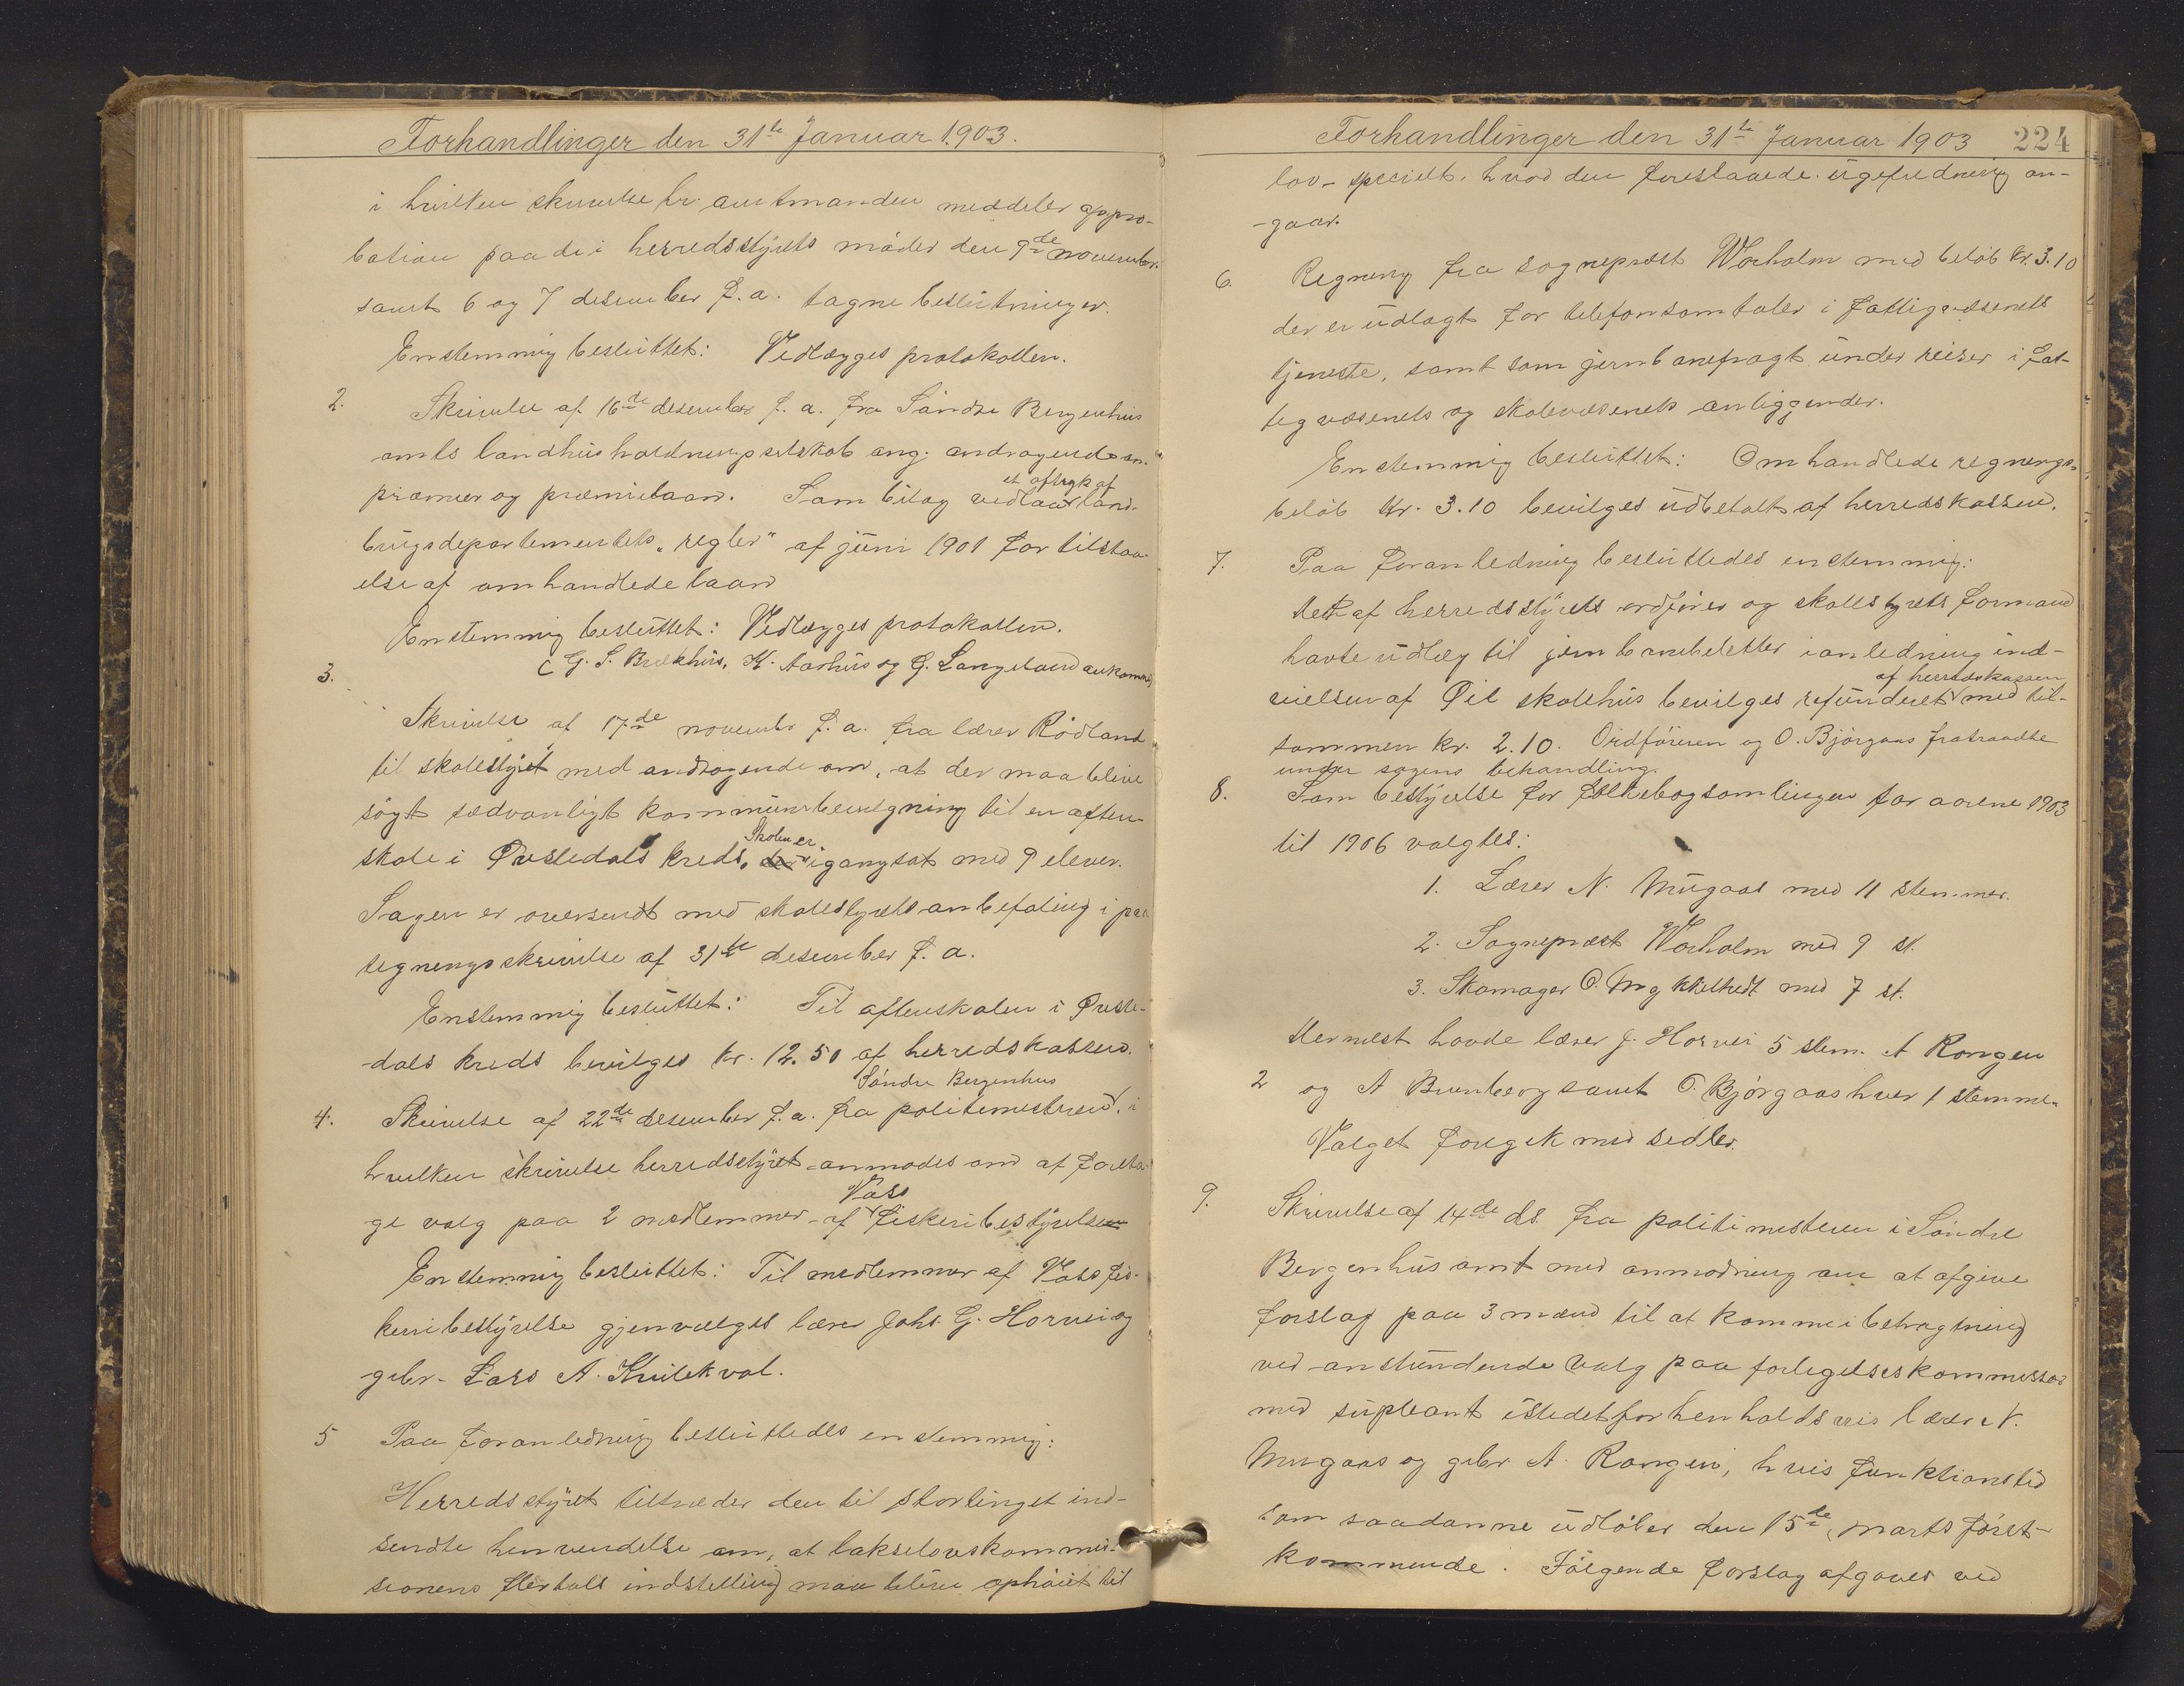 Forhandlinger den 31te Januar 1903.
i hvilken skrivelse hr. amtmanden meddeler appro-
bation paa de i herredsstyrets møder den 9de november
samt 6 og 7 desember f. a. tagne beslutninger.
Enstemmig besluttet: Vedlægges protokollen.
2. Skrivelse af 16de desember f. a. fra Søndre Bergenhus
amts landhusholdningsselskab ang. andragende om
præmier og præmielaan. Som bilag vedlaa et aftryk af land-
brugsdepartementets "regler" af juni 1901 for tilstaa-
else af omhandlede laan
Enstemmig besluttet: Vedlægges protokollen.
3. ( G. S. Brækhus, K. Aarhus og G. Langeland ankommer)
Skrivelse af 17de novembr f. a. fra lærer Rødland
til skolestyret med andragende om, at der maa blive
søgt sædvanligt kommunebevilgning til en aften-
skole i Øvstedals kreds. Skolen er igangsat med 9 elever.
Sagen er oversendt med skolestyrets anbefaling i paa-
tegningsskrivelse af 31te desember f. a.
Enstemmig besluttet: Til aftenskolen i Øvste-
dals kreds bevilges kr. 12.50 af herredskassen.
4. Skrivelse af 22de desember f. a. fra politimesteren i Søndre Bergenhus, i
hvilken skrivelse herredsstyret anmodes om at foreta-
ge valg paa 2 medlemmer af Voss fiskeribestyrelse
Enstemmig besluttet: Til medlemmer af Voss fis-
keribestyrelse gjenvælges lærer Johs. G. Horvei og
gbr. Lars A. Kvilekval.
5 Paa foranledning besluttedes enstemmig:
Herredsstyret tiltræder den til stortinget ind-
sendte henvendelse om, at lakselovskommis-
sionens flertals indstilling maa blive ophøiet til
Forhandlinger den 31te Januar 1903 224
lov - specielt, hvad den foreslaaede ugefredning an-
-gaar.
6. Regning fra sogneprest Worholm med beløb kr. 3.10
der er udlagt for telefonsamtaler i fattigvæsenets
tjeneste, samt som jernbanefragt under reiser i fat-
tigvæsenets og skolevæsenets anliggender.
Enstemmig besluttet: Omhandlede regnings-
beløb kr. 3.10 bevilges udbetalt af herredskassen.
7. Paa foranledning besluttedes enstemmig:
Det af herredsstyrets ordfører og skolestyrets formand
havte udlæg til jernbanebiletter i anledning ind-
vielsen af Øie skolehus bevilges refunderet af herredskassen med til-
sammen kr. 2.10. Ordføreren og O. Bjørgaas fratraadte
under sagens behandling.
8. Som bestyrelse for folkebogsamlingen for aarene 1903
til 1906 valgtes:
1. Lærer N. Mugaas med 11 stemmer.
2. Sogneprest Worholm med 9 st.
3. Skomager O. Mykkeltvedt med 7 st.
Dernæst havde lærer J. Horvei 5 stem. A Rongen
2 og A Brunborg samt O. Bjørgaas hver 1 stemme.
Valget foregik med sedler.
9. Skrivelse af 14de ds. fra politimesteren i Søndre
Bergenhus amt med anmodning om at afgive
forslag paa 3 mænd til at komme i betragtning
ved anstundende valg paa forlegelseskommissær
med supleant istedetfor henholdsvis lærer N.
Mugaas og gbr. A. Rongen, hvis funktionstid
som saadanne udløber den 15de marts først-
kommende. Følgende forslag afgaves ved